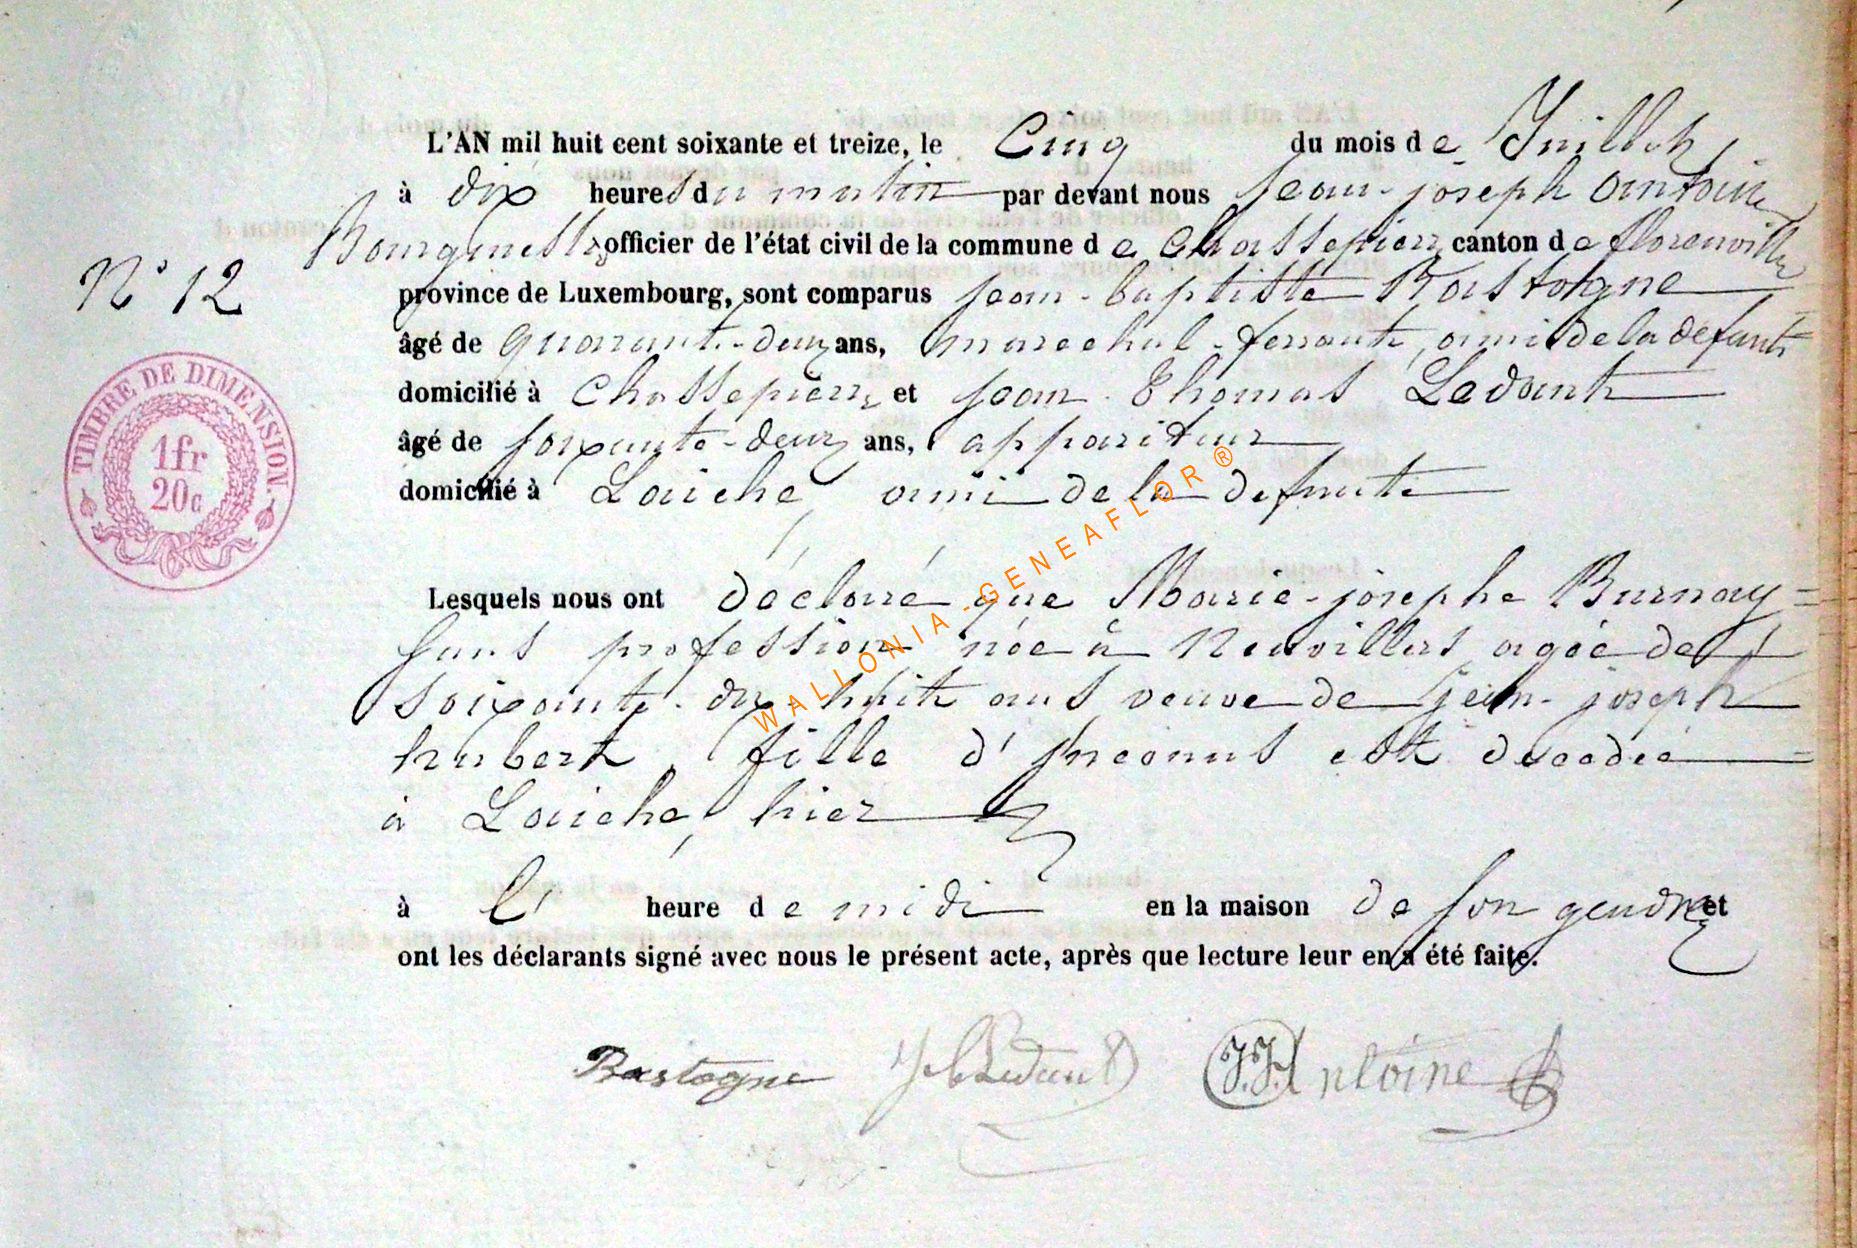 L'AN mil huit cent soixante et treize, le Cinq du mois de Juillet,
à dix heures du matin par devant nous jean-joseph antoine
Bourgmestre, officier de l'état civil de la commune de Chassepierre canton de florenville
N° 12
province de Luxembourg, sont comparus jean-baptiste Bastogne
âgé de quarante-deux ans, marechal-ferrant, ami de la defunte
domicilié à Chassepierre et jean Thomas Ledant
âgé de soixante-deux ans, appariteur
domicilié à Laiche, ami de la defunte
TIMBRE DE DIMENSION.
1fr
20c
Lesquels nous ont déclaré que Marie-josephe Burnay
sans profession née à Neuvillers agée de
soixante-dix-huit ans veuve de jean-joseph
hubert, fille d'inconnus est decedée
à Laiche, hier
à l' heure de midi en la maison de son gendre et
ont les déclarants signé avec nous le présent acte, après que lecture leur en a été faite.
Bastogne Ledant J.J. Antoine
WALLONIA-GENEAFLOR ®